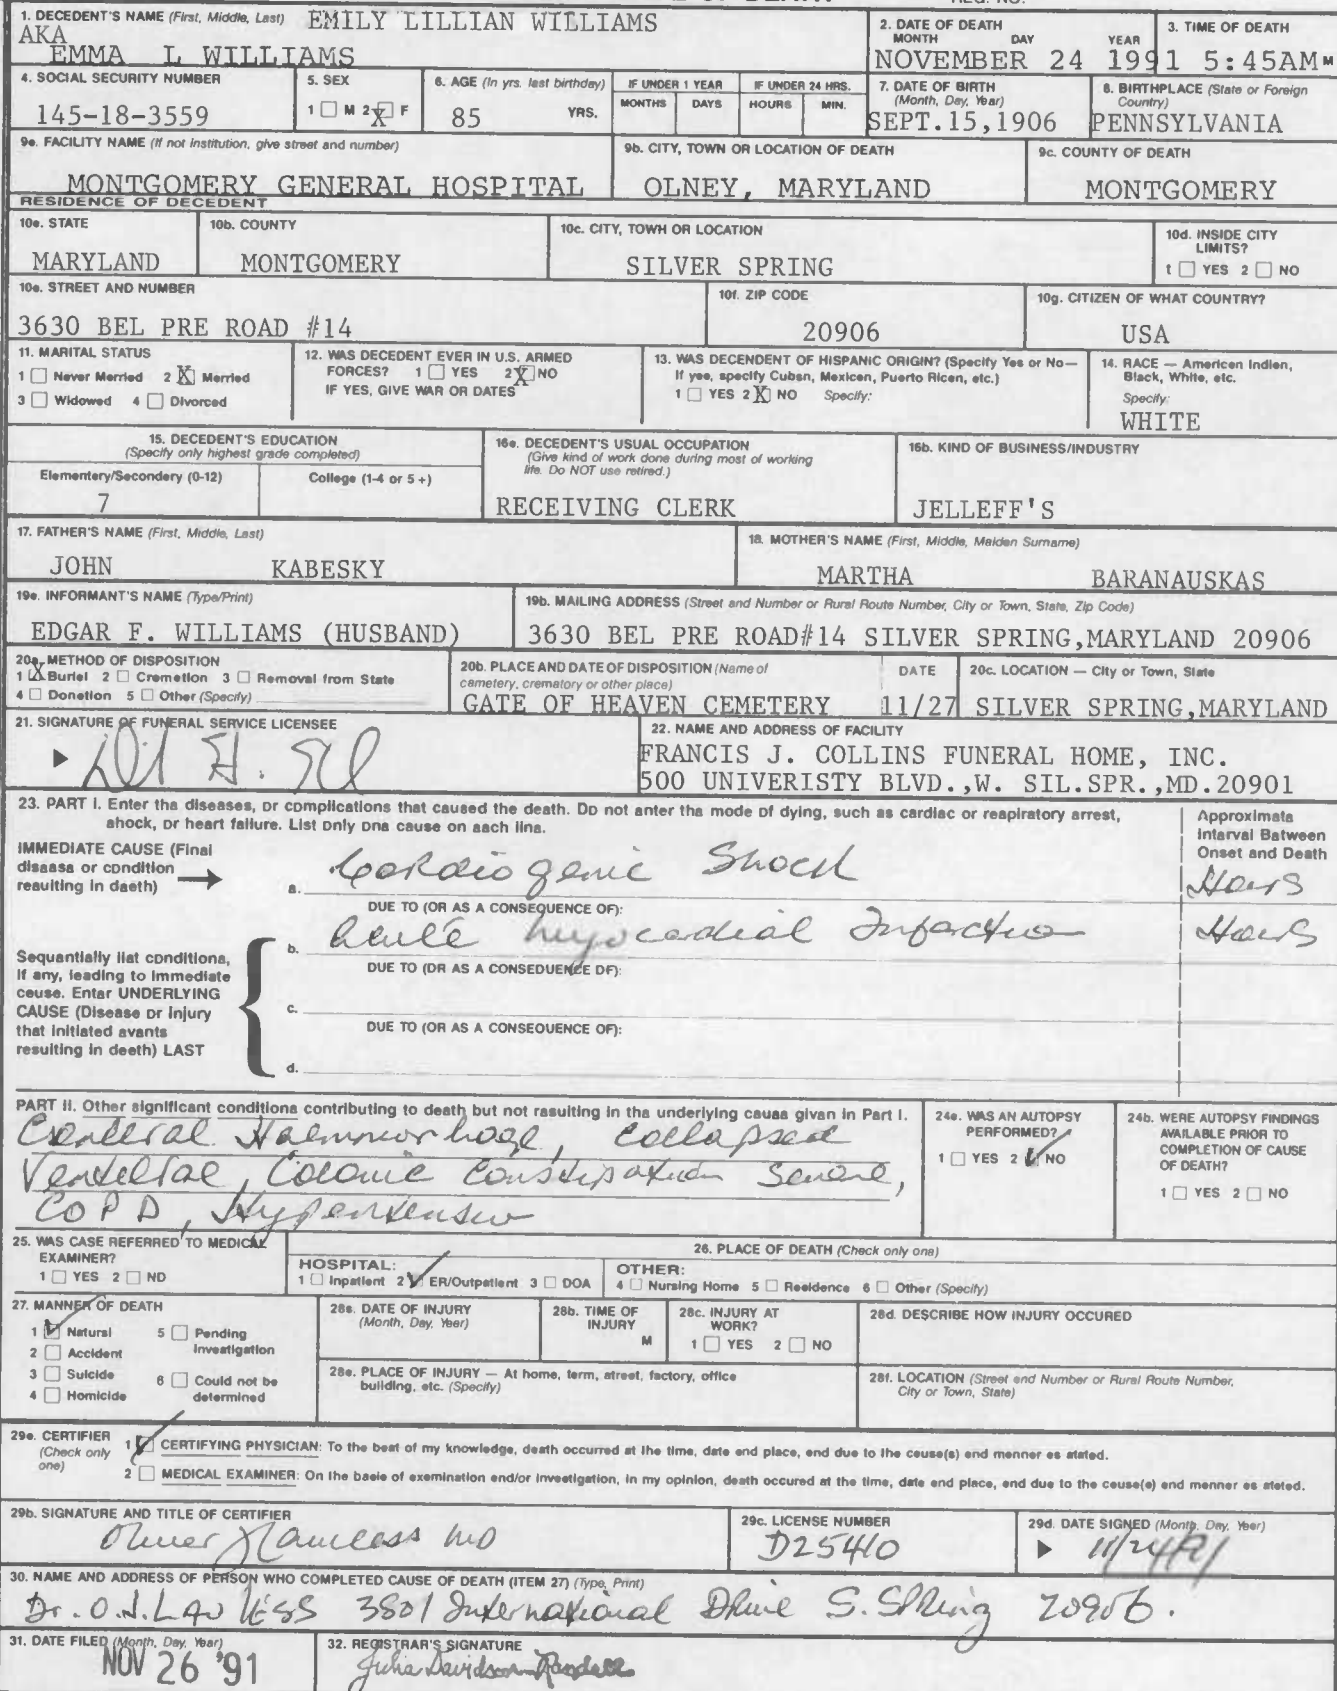 1. DECEDENT'S NAME (First, Middle, Last) EMILY LILLIAN WILLIAMS
AKA
EMMA L WILLIAMS
2. DATE OF DEATH
MONTH DAY YEAR
NOVEMBER 24 1991
3. TIME OF DEATH
5:45AM M
4. SOCIAL SECURITY NUMBER
145-18-3559
5. SEX
1 M 2 X F
6. AGE (In yrs. last birthday)
85 YRS.
IF UNDER 1 YEAR
MONTHS DAYS
IF UNDER 24 HRS.
HOURS MIN.
7. DATE OF BIRTH
(Month, Day, Year)
SEPT.15,1906
8. BIRTHPLACE (State or Foreign
Country)
PENNSYLVANIA
9a. FACILITY NAME (If not institution, give street and number)
MONTGOMERY GENERAL HOSPITAL
9b. CITY, TOWN OR LOCATION OF DEATH
OLNEY, MARYLAND
9c. COUNTY OF DEATH
MONTGOMERY
RESIDENCE OF DECEDENT
10a. STATE
MARYLAND
10b. COUNTY
MONTGOMERY
10c. CITY, TOWN OR LOCATION
SILVER SPRING
10d. INSIDE CITY
LIMITS?
1 YES 2 NO
10e. STREET AND NUMBER
3630 BEL PRE ROAD #14
10f. ZIP CODE
20906
10g. CITIZEN OF WHAT COUNTRY?
USA
11. MARITAL STATUS
1 Never Married 2 X Married
3 Widowed 4 Divorced
12. WAS DECEDENT EVER IN U.S. ARMED
FORCES? 1 YES 2 X NO
IF YES, GIVE WAR OR DATES
13. WAS DECENDENT OF HISPANIC ORIGIN? (Specify Yes or No—
If yes, specify Cuban, Mexican, Puerto Rican, etc.)
1 YES 2 X NO Specify:
14. RACE — American Indian,
Black, White, etc.
Specify:
WHITE
15. DECEDENT'S EDUCATION
(Specify only highest grade completed)
Elementary/Secondary (0-12) College (1-4 or 5+)
7
16a. DECEDENT'S USUAL OCCUPATION
(Give kind of work done during most of working
life. Do NOT use retired.)
RECEIVING CLERK
16b. KIND OF BUSINESS/INDUSTRY
JELLEFF'S
17. FATHER'S NAME (First, Middle, Last)
JOHN KABESKY
18. MOTHER'S NAME (First, Middle, Maiden Surname)
MARTHA BARANAUSKAS
19a. INFORMANT'S NAME (Type/Print)
EDGAR F. WILLIAMS (HUSBAND)
19b. MAILING ADDRESS (Street and Number or Rural Route Number, City or Town, State, Zip Code)
3630 BEL PRE ROAD#14 SILVER SPRING,MARYLAND 20906
20a. METHOD OF DISPOSITION
1 X Burial 2 Cremation 3 Removal from State
4 Donation 5 Other (Specify)
20b. PLACE AND DATE OF DISPOSITION (Name of
cemetery, crematory or other place)
GATE OF HEAVEN CEMETERY
DATE
11/27
20c. LOCATION — City or Town, State
SILVER SPRING,MARYLAND
21. SIGNATURE OF FUNERAL SERVICE LICENSEE
22. NAME AND ADDRESS OF FACILITY
FRANCIS J. COLLINS FUNERAL HOME, INC.
500 UNIVERISTY BLVD.,W. SIL.SPR.,MD.20901
23. PART I. Enter the diseases, or complications that caused the death. Do not enter the mode of dying, such as cardiac or respiratory arrest,
shock, or heart failure. List only one cause on each line.
Approximate
Interval Between
Onset and Death
IMMEDIATE CAUSE (Final
disease or condition
resulting in death)
a. Cardiogenic Shock Hours
DUE TO (OR AS A CONSEQUENCE OF):
b. Acute Myocardial Infarction Hours
DUE TO (OR AS A CONSEQUENCE OF):
Sequentially list conditions,
if any, leading to immediate
cause. Enter UNDERLYING
CAUSE (Disease or injury
that initiated events
resulting in death) LAST
c.
DUE TO (OR AS A CONSEQUENCE OF):
d.
PART II. Other significant conditions contributing to death but not resulting in the underlying cause given in Part I.
Haemmorhage, Collapsed
Colonic Constipation Severe,
COPD, Hypertension
24a. WAS AN AUTOPSY
PERFORMED?
1 YES 2 NO
24b. WERE AUTOPSY FINDINGS
AVAILABLE PRIOR TO
COMPLETION OF CAUSE
OF DEATH?
1 YES 2 NO
25. WAS CASE REFERRED TO MEDICAL
EXAMINER?
1 YES 2 NO
26. PLACE OF DEATH (Check only one)
HOSPITAL:
1 Inpatient 2 ER/Outpatient 3 DOA
OTHER:
4 Nursing Home 5 Residence 6 Other (Specify)
27. MANNER OF DEATH
1 Natural 5 Pending
Investigation
2 Accident
3 Suicide 6 Could not be
4 Homicide determined
28a. DATE OF INJURY
(Month, Day, Year)
28b. TIME OF
INJURY
M
28c. INJURY AT
WORK?
1 YES 2 NO
28d. DESCRIBE HOW INJURY OCCURED
28e. PLACE OF INJURY — At home, farm, street, factory, office
building, etc. (Specify)
28f. LOCATION (Street and Number or Rural Route Number,
City or Town, State)
29a. CERTIFIER
(Check only
one)
1 CERTIFYING PHYSICIAN: To the best of my knowledge, death occurred at the time, date and place, and due to the cause(s) and manner as stated.
2 MEDICAL EXAMINER: On the basis of examination and/or investigation, in my opinion, death occured at the time, date and place, and due to the cause(s) and manner as stated.
29b. SIGNATURE AND TITLE OF CERTIFIER
Oliver J Lawless MD
29c. LICENSE NUMBER
D25410
29d. DATE SIGNED (Month, Day, Year)
11/24/91
30. NAME AND ADDRESS OF PERSON WHO COMPLETED CAUSE OF DEATH (ITEM 27) (Type, Print)
Dr. O.J. LAWLESS 3801 International Drive S. Spring 20906.
31. DATE FILED (Month, Day, Year)
NOV 26 '91
32. REGISTRAR'S SIGNATURE
Julia Davidson-Randall